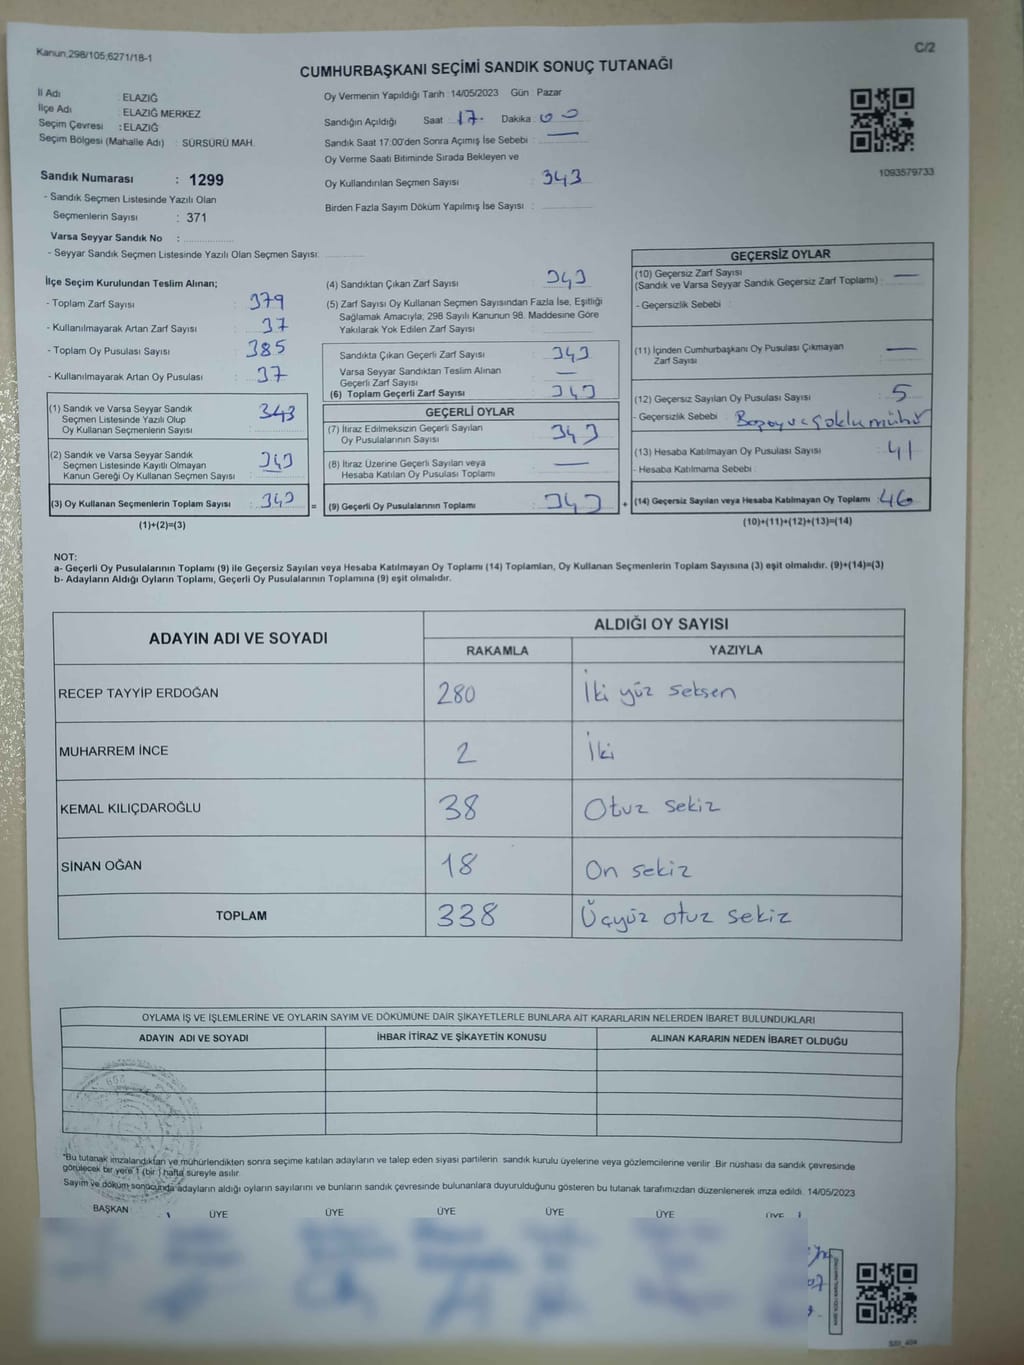 Kanun;298/105;6271/18-1
C/2
CUMHURBAŞKANI SEÇİMİ SANDIK SONUÇ TUTANAĞI
İl Adı : ELAZIĞ
İlçe Adı : ELAZIĞ MERKEZ
Seçim Çevresi : ELAZIĞ
Seçim Bölgesi (Mahalle Adı) : SÜRSÜRÜ MAH.
Sandık Numarası : 1299
- Sandık Seçmen Listesinde Yazılı Olan
Seçmenlerin Sayısı : 371
Varsa Seyyar Sandık No :
- Seyyar Sandık Seçmen Listesinde Yazılı Olan Seçmen Sayısı:
Oy Vermenin Yapıldığı Tarih :14/05/2023 Gün : Pazar
Sandığın Açıldığı Saat : 17 Dakika : 00
Sandık Saat 17:00'den Sonra Açımış İse Sebebi : —
Oy Verme Saati Bitiminde Sırada Bekleyen ve
Oy Kullandırılan Seçmen Sayısı : 343
Birden Fazla Sayım Döküm Yapılmış İse Sayısı :
1093579733
İlçe Seçim Kurulundan Teslim Alınan;
- Toplam Zarf Sayısı : 379
- Kullanılmayarak Artan Zarf Sayısı : 37
- Toplam Oy Pusulası Sayısı : 385
- Kullanılmayarak Artan Oy Pusulası : 37
(1) Sandık ve Varsa Seyyar Sandık
Seçmen Listesinde Yazılı Olup
Oy Kullanan Seçmenlerin Sayısı : 343
(2) Sandık ve Varsa Seyyar Sandık
Seçmen Listesinde Kayıtlı Olmayan
Kanun Gereği Oy Kullanan Seçmen Sayısı : 343
(3) Oy Kullanan Seçmenlerin Toplam Sayısı : 343
(1)+(2)=(3)
(4) Sandıktan Çıkan Zarf Sayısı : 343
(5) Zarf Sayısı Oy Kullanan Seçmen Sayısından Fazla İse, Eşitliği
Sağlamak Amacıyla; 298 Sayılı Kanunun 98. Maddesine Göre
Yakılarak Yok Edilen Zarf Sayısı :
Sandıkta Çıkan Geçerli Zarf Sayısı : 343
Varsa Seyyar Sandıktan Teslim Alınan
Geçerli Zarf Sayısı : —
(6) Toplam Geçerli Zarf Sayısı : 343
GEÇERLİ OYLAR
(7) İtiraz Edilmeksizin Geçerli Sayılan
Oy Pusulalarının Sayısı : 343
(8) İtiraz Üzerine Geçerli Sayılan veya
Hesaba Katılan Oy Pusulası Toplamı : —
= (9) Geçerli Oy Pusulalarının Toplamı : 343 +
GEÇERSİZ OYLAR
(10) Geçersiz Zarf Sayısı
(Sandık ve Varsa Seyyar Sandık Geçersiz Zarf Toplamı) : —
- Geçersizlik Sebebi :
(11) İçinden Cumhurbaşkanı Oy Pusulası Çıkmayan
Zarf Sayısı : —
(12) Geçersiz Sayılan Oy Pusulası Sayısı : 5
- Geçersizlik Sebebi : çoklu mühür
(13) Hesaba Katılmayan Oy Pusulası Sayısı : 41
- Hesaba Katılmama Sebebi :
(14) Geçersiz Sayılan veya Hesaba Katılmayan Oy Toplamı : 46
(10)+(11)+(12)+(13)=(14)
NOT:
a- Geçerli Oy Pusulalarının Toplamı (9) ile Geçersiz Sayılan veya Hesaba Katılmayan Oy Toplamı (14) Toplamları, Oy Kullanan Seçmenlerin Toplam Sayısına (3) eşit olmalıdır. (9)+(14)=(3)
b- Adayların Aldığı Oyların Toplamı, Geçerli Oy Pusulalarının Toplamına (9) eşit olmalıdır.
ADAYIN ADI VE SOYADI
ALDIĞI OY SAYISI
RAKAMLA YAZIYLA
RECEP TAYYİP ERDOĞAN 280 İki yüz seksen
MUHARREM İNCE 2 İki
KEMAL KILIÇDAROĞLU 38 Otuz sekiz
SİNAN OĞAN 18 On sekiz
TOPLAM 338 Üçyüz otuz sekiz
OYLAMA İŞ VE İŞLEMLERİNE VE OYLARIN SAYIM VE DÖKÜMÜNE DAİR ŞİKAYETLERLE BUNLARA AİT KARARLARIN NELERDEN İBARET BULUNDUKLARI
ADAYIN ADI VE SOYADI İHBAR İTİRAZ VE ŞİKAYETİN KONUSU ALINAN KARARIN NEDEN İBARET OLDUĞU
*Bu tutanak imzalandıktan ve mühürlendikten sonra seçime katılan adayların ve talep eden siyasi partilerin sandık kurulu üyelerine veya gözlemcilerine verilir. Bir nüshası da sandık çevresinde
görülecek bir yere 1 (bir ) hafta süreyle asılır.
Sayım ve döküm sonucunda adayların aldığı oyların sayılarını ve bunların sandık çevresinde bulunanlara duyurulduğunu gösteren bu tutanak tarafımızdan düzenlenerek imza edildi. 14/05/2023
BAŞKAN ÜYE ÜYE ÜYE ÜYE ÜYE ÜYE